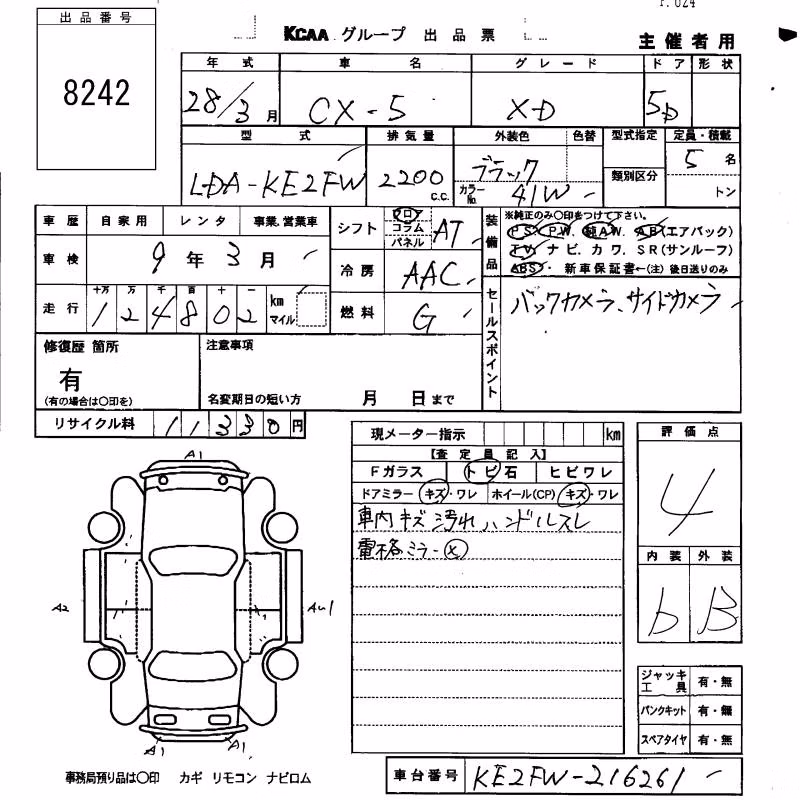 出品番号
8242
KCAA グループ 出品票
主催者用
年式 車名 グレード ドア 形状
28/3月 CX-5 XD 5D
型式 排気量 外装色 色替 型式指定 定員・積載
LDA-KE2FW 2200 C.C. ブラック 類別区分 5名
カラーNo. 41W トン
車歴 自家用 レンタ 事業、営業車
シフト フロ コラム パネル AT
装備品
※純正のみ〇印をつけて下さい。
PS. PW. 純AW. AB(エアバック)
TV. ナビ. カワ. SR(サンルーフ)
ABS. 新車保証書←(注)後日送りのみ
車検 9年3月
冷房 AAC
走行 十万 万 千 百 十 一
124802 km マイル
燃料 G
セールスポイント
バックカメラ、サイドカメラ
修復歴 箇所
有
(有の場合は〇印を)
注意事項
名変期日の短い方 月 日まで
リサイクル料 11330円
現メーター指示 km
【査定員記入】
Fガラス トビ石 ヒビワレ
ドアミラー キズ・ワレ ホイール(CP) キズ・ワレ
車内キズ汚れ ハンドルスレ
電格ミラー×
評価点
4
内装 外装
b B
A1
A2
A1
A1
ジャッキ工具 有・無
パンクキット 有・無
スペアタイヤ 有・無
事務局預り品は〇印 カギ リモコン ナビロム
車台番号 KE2FW-216261